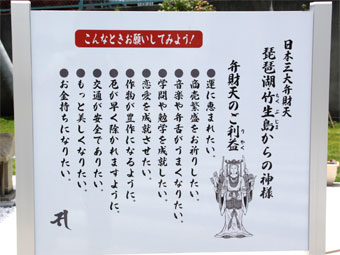 こんなときお願いしてみよう!
日本三大弁財天
琵琶湖竹生島からの神様
ちくぶじま
弁財天のご利益
りやく
●運に恵まれたい。
●商売繁盛をお祈りしたい。
●音楽や弁舌がうまくなりたい。
●学問や勉学を成就したい。
●恋愛を成就させたい。
●作物が豊作になるように。
●厄が早く除かれますように。
●交通が安全でありたい。
●もっと美しくなりたい。
●お金持ちになりたい。